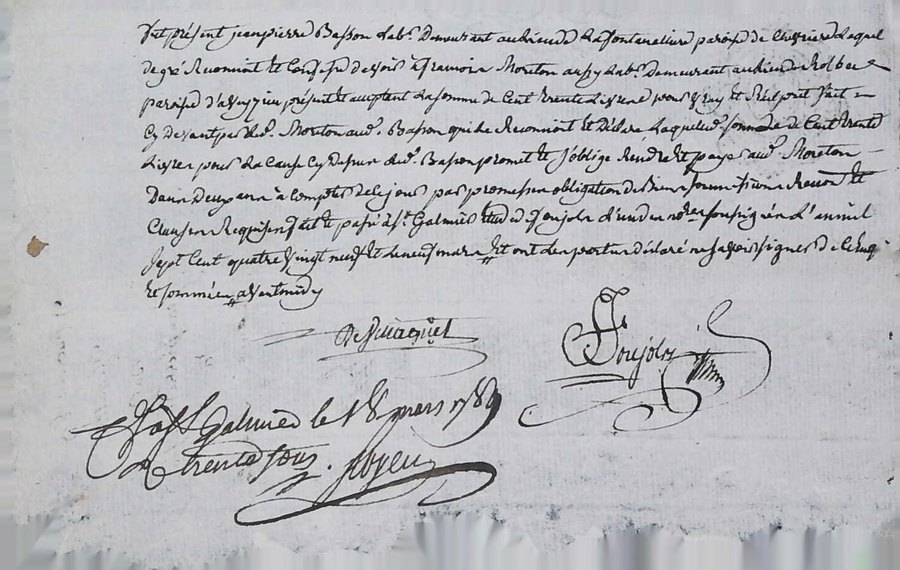 fut présent jean pierre Basson lab.r Demeurant au lieu de La fontanelliere paroisse de Chevrieres Lequel
de gré Reconnoit et Confesse devoir a françois Moreton aussy Lab.r Demeurant au lieu de
paroisse d'aveyzieu présent et acceptant La somme de Cent trente Livres pour vray et Réel prêt fait
Cy devant par led. Moreton aud. Basson qui le Reconnoit et Déclare Laquelle d. somme de Cent trente
Livres pour La Cause Cy dessus led. Basson promet et s'oblige Rendre et payer aud. Moreton
Dans Deux ans à Compter de ce jour par promesse obligation de Biens soumissions Renon. et
Clauses Requises fait et passé à S.t Galmier Etude de Soujolz L'un des no.res soussignés L'an mil
sept Cent quatre vingt neuf et Le neuf mars et ont Les parties déclaré ne sçavoir signer de ce Enq.
et sommées avant midy
Soujolz
à S.t Galmier le 18 mars 1789
R trente sous.